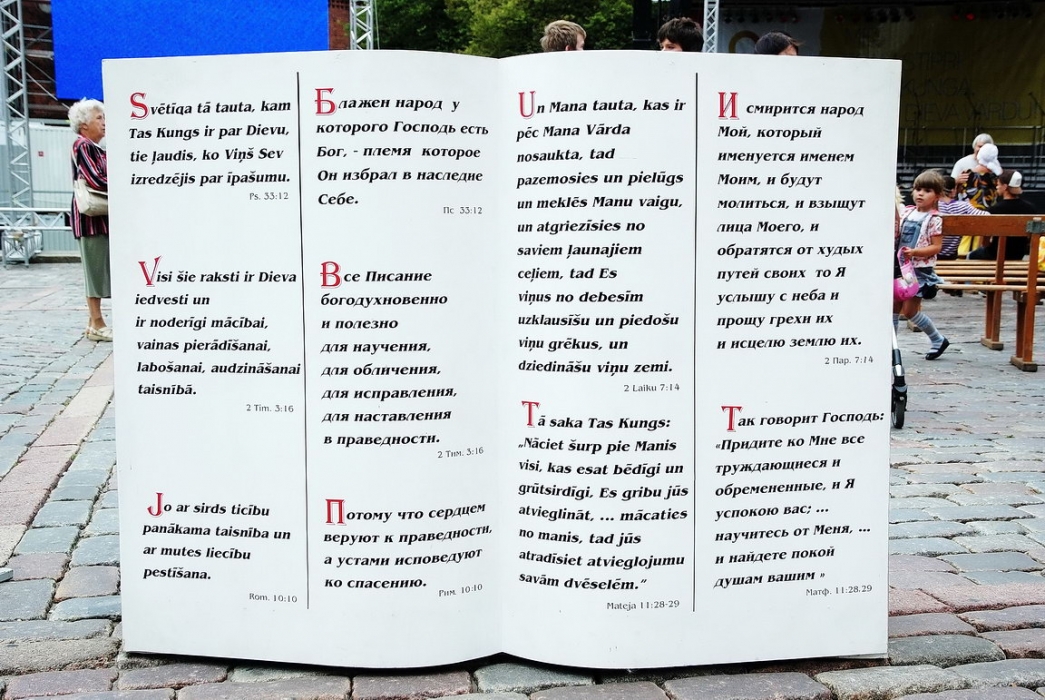 Svētīga tā tauta, kam
Tas Kungs ir par Dievu,
tie ļaudis, ko Viņš Sev
izredzējis par īpašumu.
Ps. 33:12
Visi šie raksti ir Dieva
iedvesti un
ir noderīgi mācībai,
vainas pierādīšanai,
labošanai, audzināšanai
taisnībā.
2 Tim. 3:16
Jo ar sirds ticību
panākama taisnība un
ar mutes liecību
pestīšana.
Rom. 10:10
Блажен народ у
которого Господь есть
Бог, - племя которое
Он избрал в наследие
Себе.
Пс 33:12
Все Писание
богодухновенно
и полезно
для научения,
для обличения,
для исправления,
для наставления
в праведности.
2 Тим. 3:16
Потому что сердцем
веруют к праведности,
а устами исповедуют
ко спасению.
Рим. 10:10
Un Mana tauta, kas ir
pēc Mana Vārda
nosaukta, tad
pazemosies un pielūgs
un meklēs Manu vaigu,
un atgriezīsies no
saviem ļaunajiem
ceļiem, tad Es
viņus no debesīm
uzklausīšu un piedošu
viņu grēkus, un
dziedināšu viņu zemi.
2 Laiku 7:14
Tā saka Tas Kungs:
„Nāciet šurp pie Manis
visi, kas esat bēdīgi un
grūtsirdīgi, Es gribu jūs
atvieglināt, ... mācaties
no manis, tad jūs
atradīsiet atvieglojumu
savām dvēselēm.”
Mateja 11:28-29
И смирится народ
Мой, который
именуется именем
Моим, и будут
молиться, и взыщут
лица Моего, и
обратятся от худых
путей своих то Я
услышу с неба и
прощу грехи их
и исцелю землю их.
2 Пар. 7:14
Так говорит Господь:
«Придите ко Мне все
труждающиеся и
обремененные, и Я
успокою вас; ...
научитесь от Меня, ...
и найдете покой
душам вашим »
Матф. 11:28.29